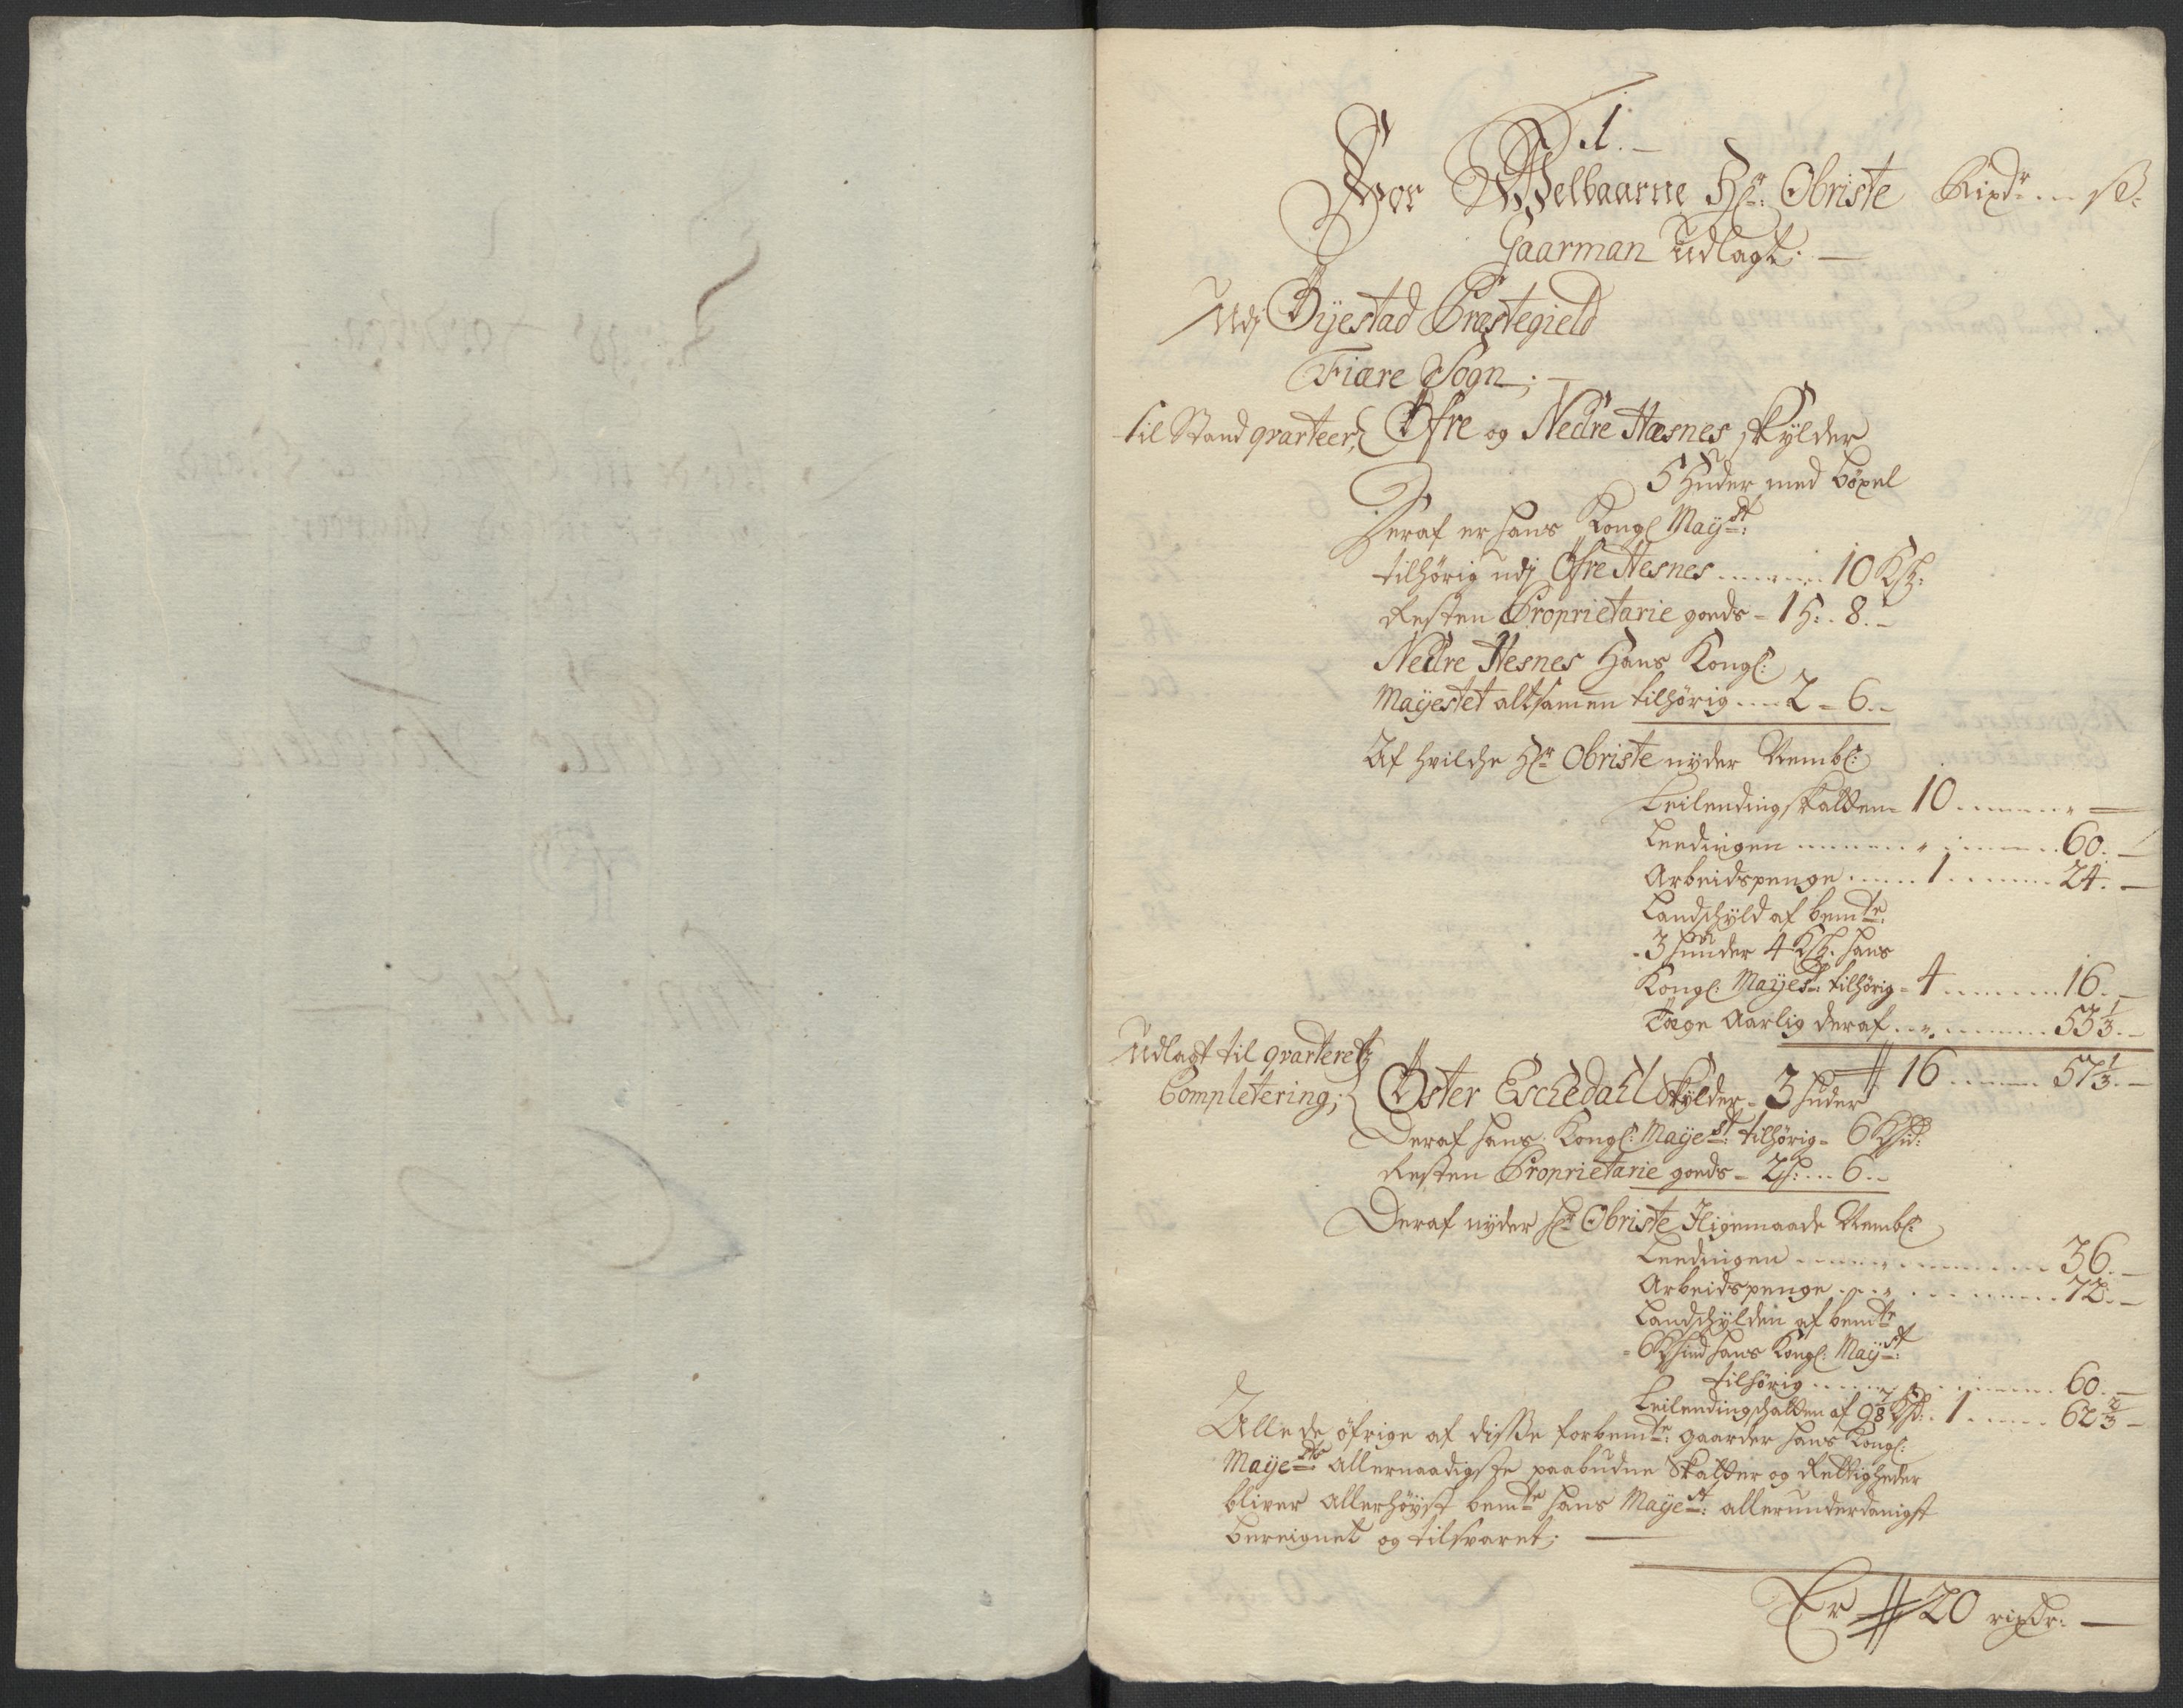 1.
For Welbaarne Hr: Obriste Rixdr ... ſß:
Gaarman Udlagt:
Udj Öyestad Præstegield
Fiære Sogn;
til Stand qvarteer, Öfre og Nedre Hæsnes skÿlder
5 Huder med böxel
Deraf er hans Kongl Maÿst:
tilhörig udj Öfre Hesnes ...... 10 Ksh:
Resten Proprietarie goeds - 1 h: . 8. -
Nedre Hesnes Hans Kongl:
Maÿestet altsamen tilhörig .... 2 - 6. -
Af hvilche Hr Obriste nyder Nembl:
Leilendingskatten - 10 ....... " —
Leedingen ........ " ....... 60. —
Arbeidspenge ..... 1 ....... 24. —
Landschÿld af bemte:
3 huder 4 Ksh: hans
Kongl: Maÿest: tilhörig - 4 ....... 16. —
Tæge Aarlig deraf .. " ....... 53 1/3. —
16 ...... 57 1/3. —
Udlagt til qvarterets
Completering; Öster Eschedahl Skÿlder - 3 huder
Deraf hans Kongl: Maÿest: tilhörig - 6 Kshd:
Resten Proprietarie goeds - 2 h: ... 6. -
Deraf nyder hr Obriste Iligemaade Nembl:
Leedingen ........ " ....... 36. —
Arbeidspenge .... " ....... 72. —
Landschÿlden af bemte
6 Kshind hans Kongl: Maÿst:
tilhörig ...... " ....... 60. —
Leilendingschatten af 9 7/8 Ksh: . 1 ...... 62 2/3 —
Alle de öfrige af disse forbemte: gaarder hans Kongl:
Maÿests: allernaadigste paabudne Skatter og Rettigheder
bliver allerhöyst bemte hans Maÿest: allerunderdanigst
bereignet og tilsvaret; —
Er 20 rixdr: —